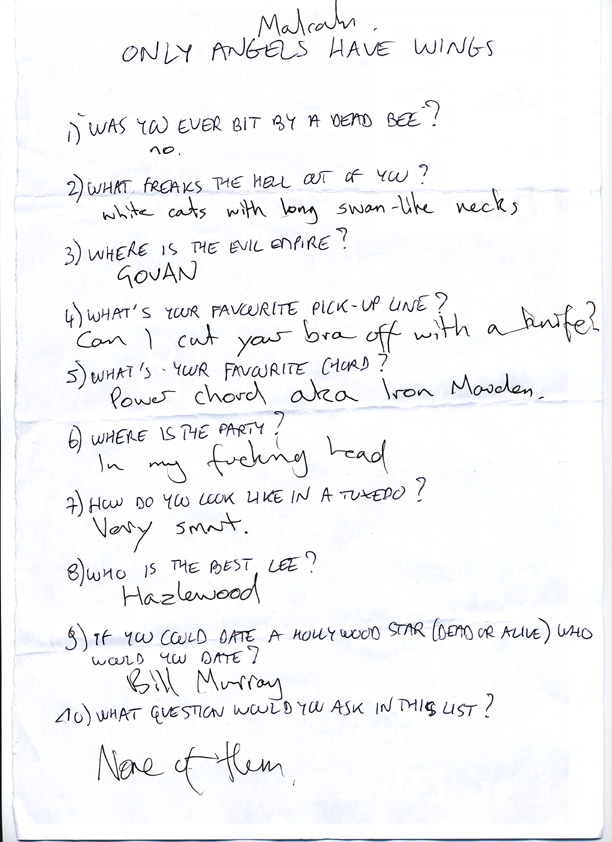 Malcolm.
ONLY ANGELS HAVE WINGS
1) WAS YOU EVER BIT BY A DEAD BEE?
no.
2) WHAT FREAKS THE HELL OUT OF YOU?
white cats with long swan-like necks
3) WHERE IS THE EVIL EMPIRE?
GOVAN
4) WHAT'S YOUR FAVOURITE PICK-UP LINE?
Can I cut your bra off with a knife?
5) WHAT'S YOUR FAVOURITE CHORD?
Power chord aka Iron Maiden.
6) WHERE IS THE PARTY?
In my fucking head
7) HOW DO YOU LOOK LIKE IN A TUXEDO?
Very smart.
8) WHO IS THE BEST LEE?
Hazlewood
9) IF YOU COULD DATE A HOLLYWOOD STAR (DEAD OR ALIVE) WHO
WOULD YOU DATE?
Bill Murray
10) WHAT QUESTION WOULD YOU ASK IN THIS LIST?
None of them.